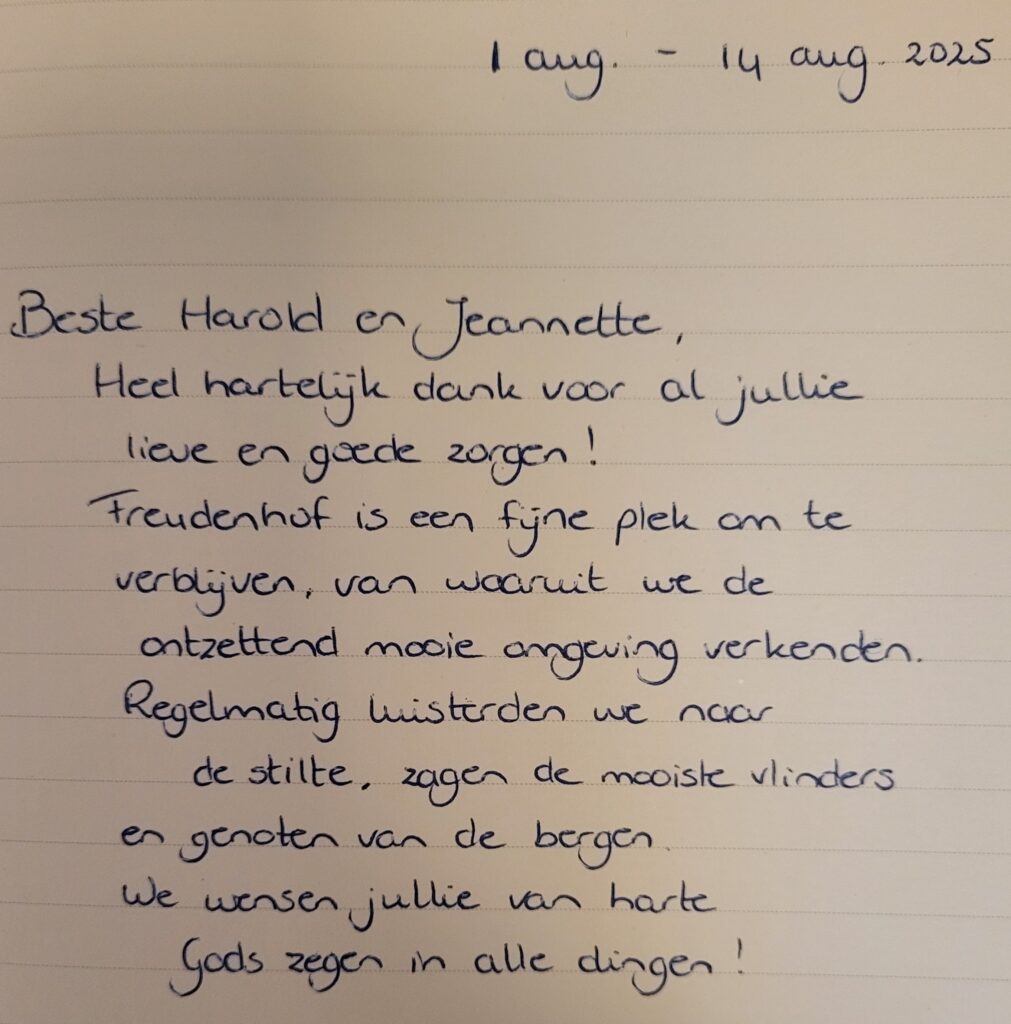 1 aug. - 14 aug. 2025
Beste Harold en Jeannette,
Heel hartelijk dank voor al jullie
lieve en goede zorgen!
Freudenhof is een fijne plek om te
verblijven, van waaruit we de
ontzettend mooie omgeving verkenden.
Regelmatig luisterden we naar
de stilte, zagen de mooiste vlinders
en genoten van de bergen.
We wensen jullie van harte
Gods zegen in alle dingen!